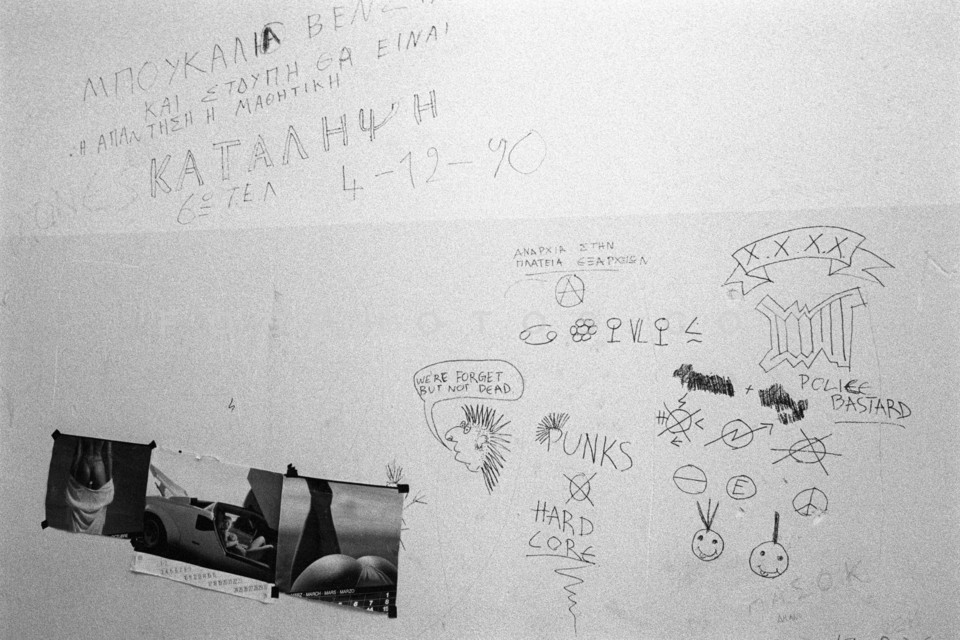 ΜΠΟΥΚΑΛΙΑ
ΚΑΙ ΣΤΟΥΠΗ ΘΑ ΕΙΝΑΙ
Η ΑΠΑΝΤΗΣΗ Η ΜΑΘΗΤΙΚΗ
ΚΑΤΑΛΗΨΗ
6ο ΤΕΛ 4-12-90
ΑΝΑΡΧΙΑ ΣΤΗΝ
ΠΛΑΤΕΙΑ ΕΞΑΡΧΕΙΩΝ
X.X.X.X.
WE'RE FORGET
BUT NOT DEAD
POLICE
BASTARD
PUNKS
HARD
CORE
MARCH MARS MARZO